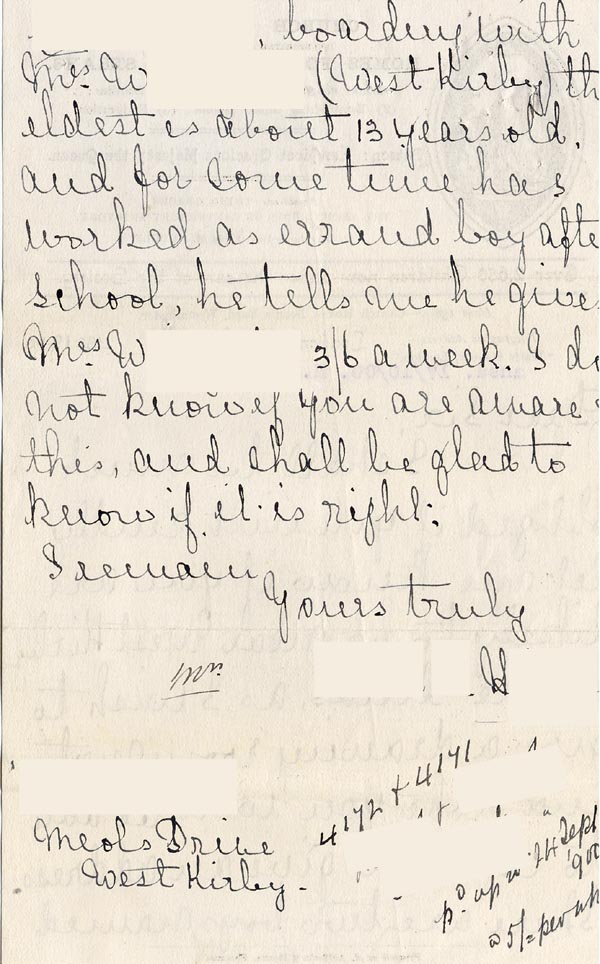 , boarding with
Mrs W (West Kirby) th
eldest is about 13 years old,
and for some time has
worked as errand boy afte
school, he tells me he gives
Mrs W 3/6 a week. I do
not know if you are aware
this, and shall be glad to
know if it is right;
I remain
Yours truly
H
4172 + 4171
Meols Drive
West Kirby.
pd up to 14 Sept
1900
@ 5/= per wk